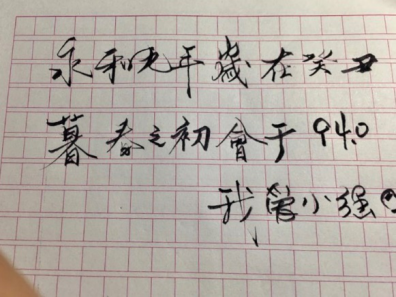 永和九年歲在癸丑
暮春之初會于940
我曾小强